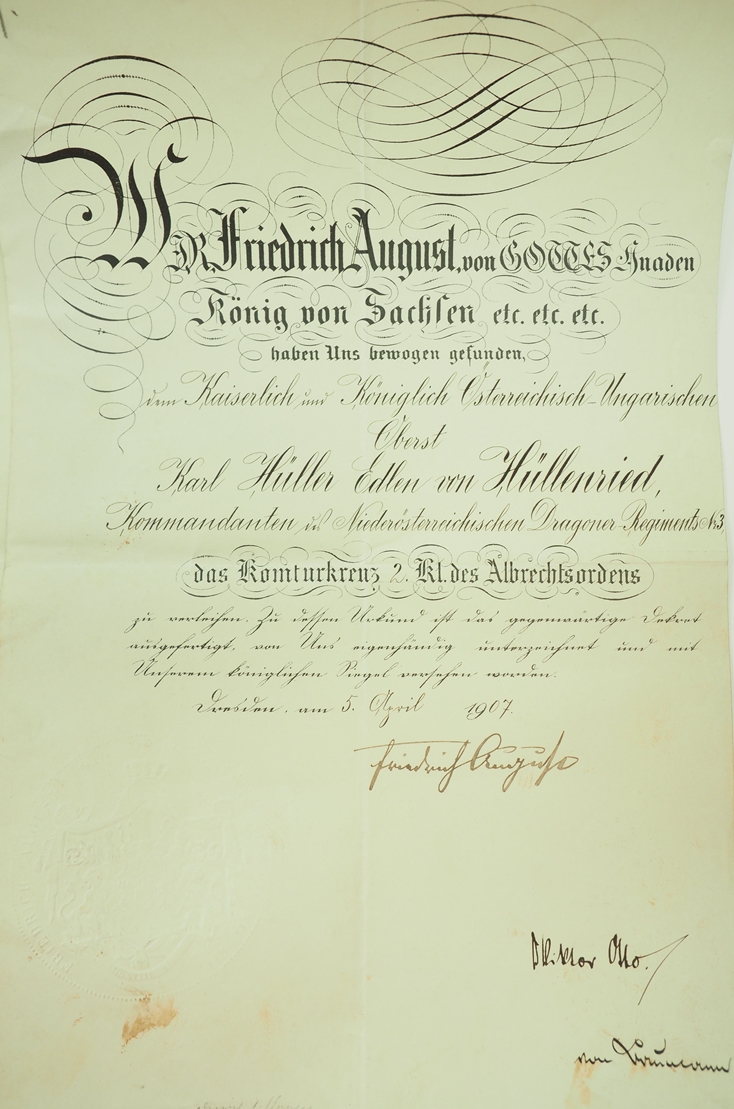 WIR, Friedrich August, von GOTTES Gnaden
König von Sachsen etc. etc. etc.
haben Uns bewogen gefunden,
dem Kaiserlich und Königlich Österreichisch-Ungarischen
Oberst
Karl Hüller Edlen von Hüllenried,
Kommandanten des Niederösterreichischen Dragoner-Regiments № 3
das Komturkreuz 2. Kl. des Albrechtsordens
zu verleihen. Zu dessen Urkund ist das gegenwärtige Dekret
ausgefertigt, von Uns eigenhändig unterzeichnet und mit
Unserem königlichen Siegel versehen worden.
Dresden, am 5. April 1907.
Friedrich August
Otto.
von Baumann